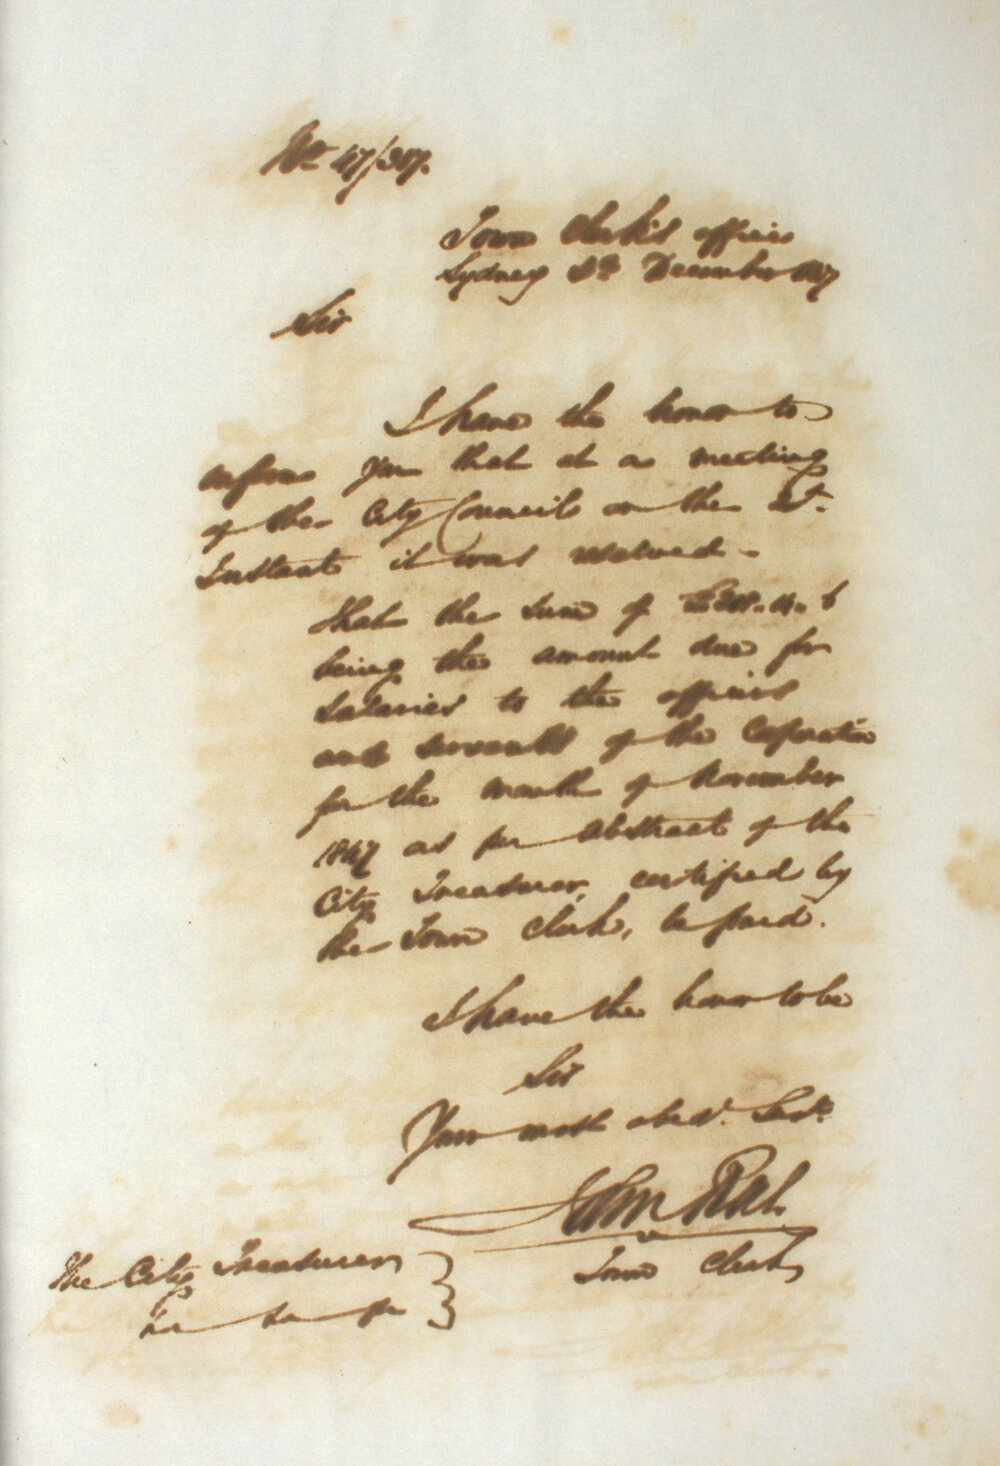 No 47/387.
Town Clerk's office
Sydney 3d December 1847
Sir
I have the honor to
inform you that at a meeting
of the City Council on the
Instant it was resolved -
that the sum of
being the amount due for
salaries to the officers
and servants of the Corporation
for the month of November
1847 as per abstract of the
City Treasurer, certified by
the Town Clerk, be paid.
I have the honor to be
Sir
Your most obedt. Servt.
John Rae
Town Clerk
The City Treasurer